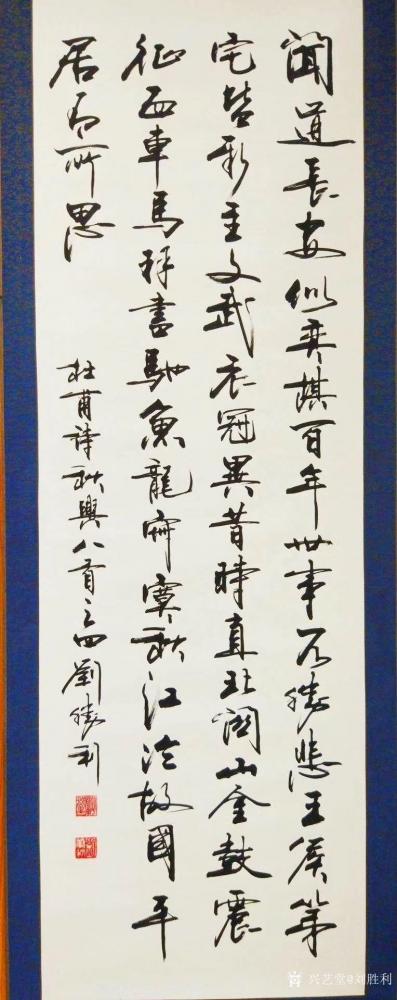 聞道長安似弈棋百年世事不勝悲王侯第
宅皆新主文武衣冠異昔時直北關山金鼓震
征西車馬羽書馳魚龍寂寞秋江冷故國平
居有所思
杜甫詩秋興八首之四劉勝利
兴艺堂@刘胜利